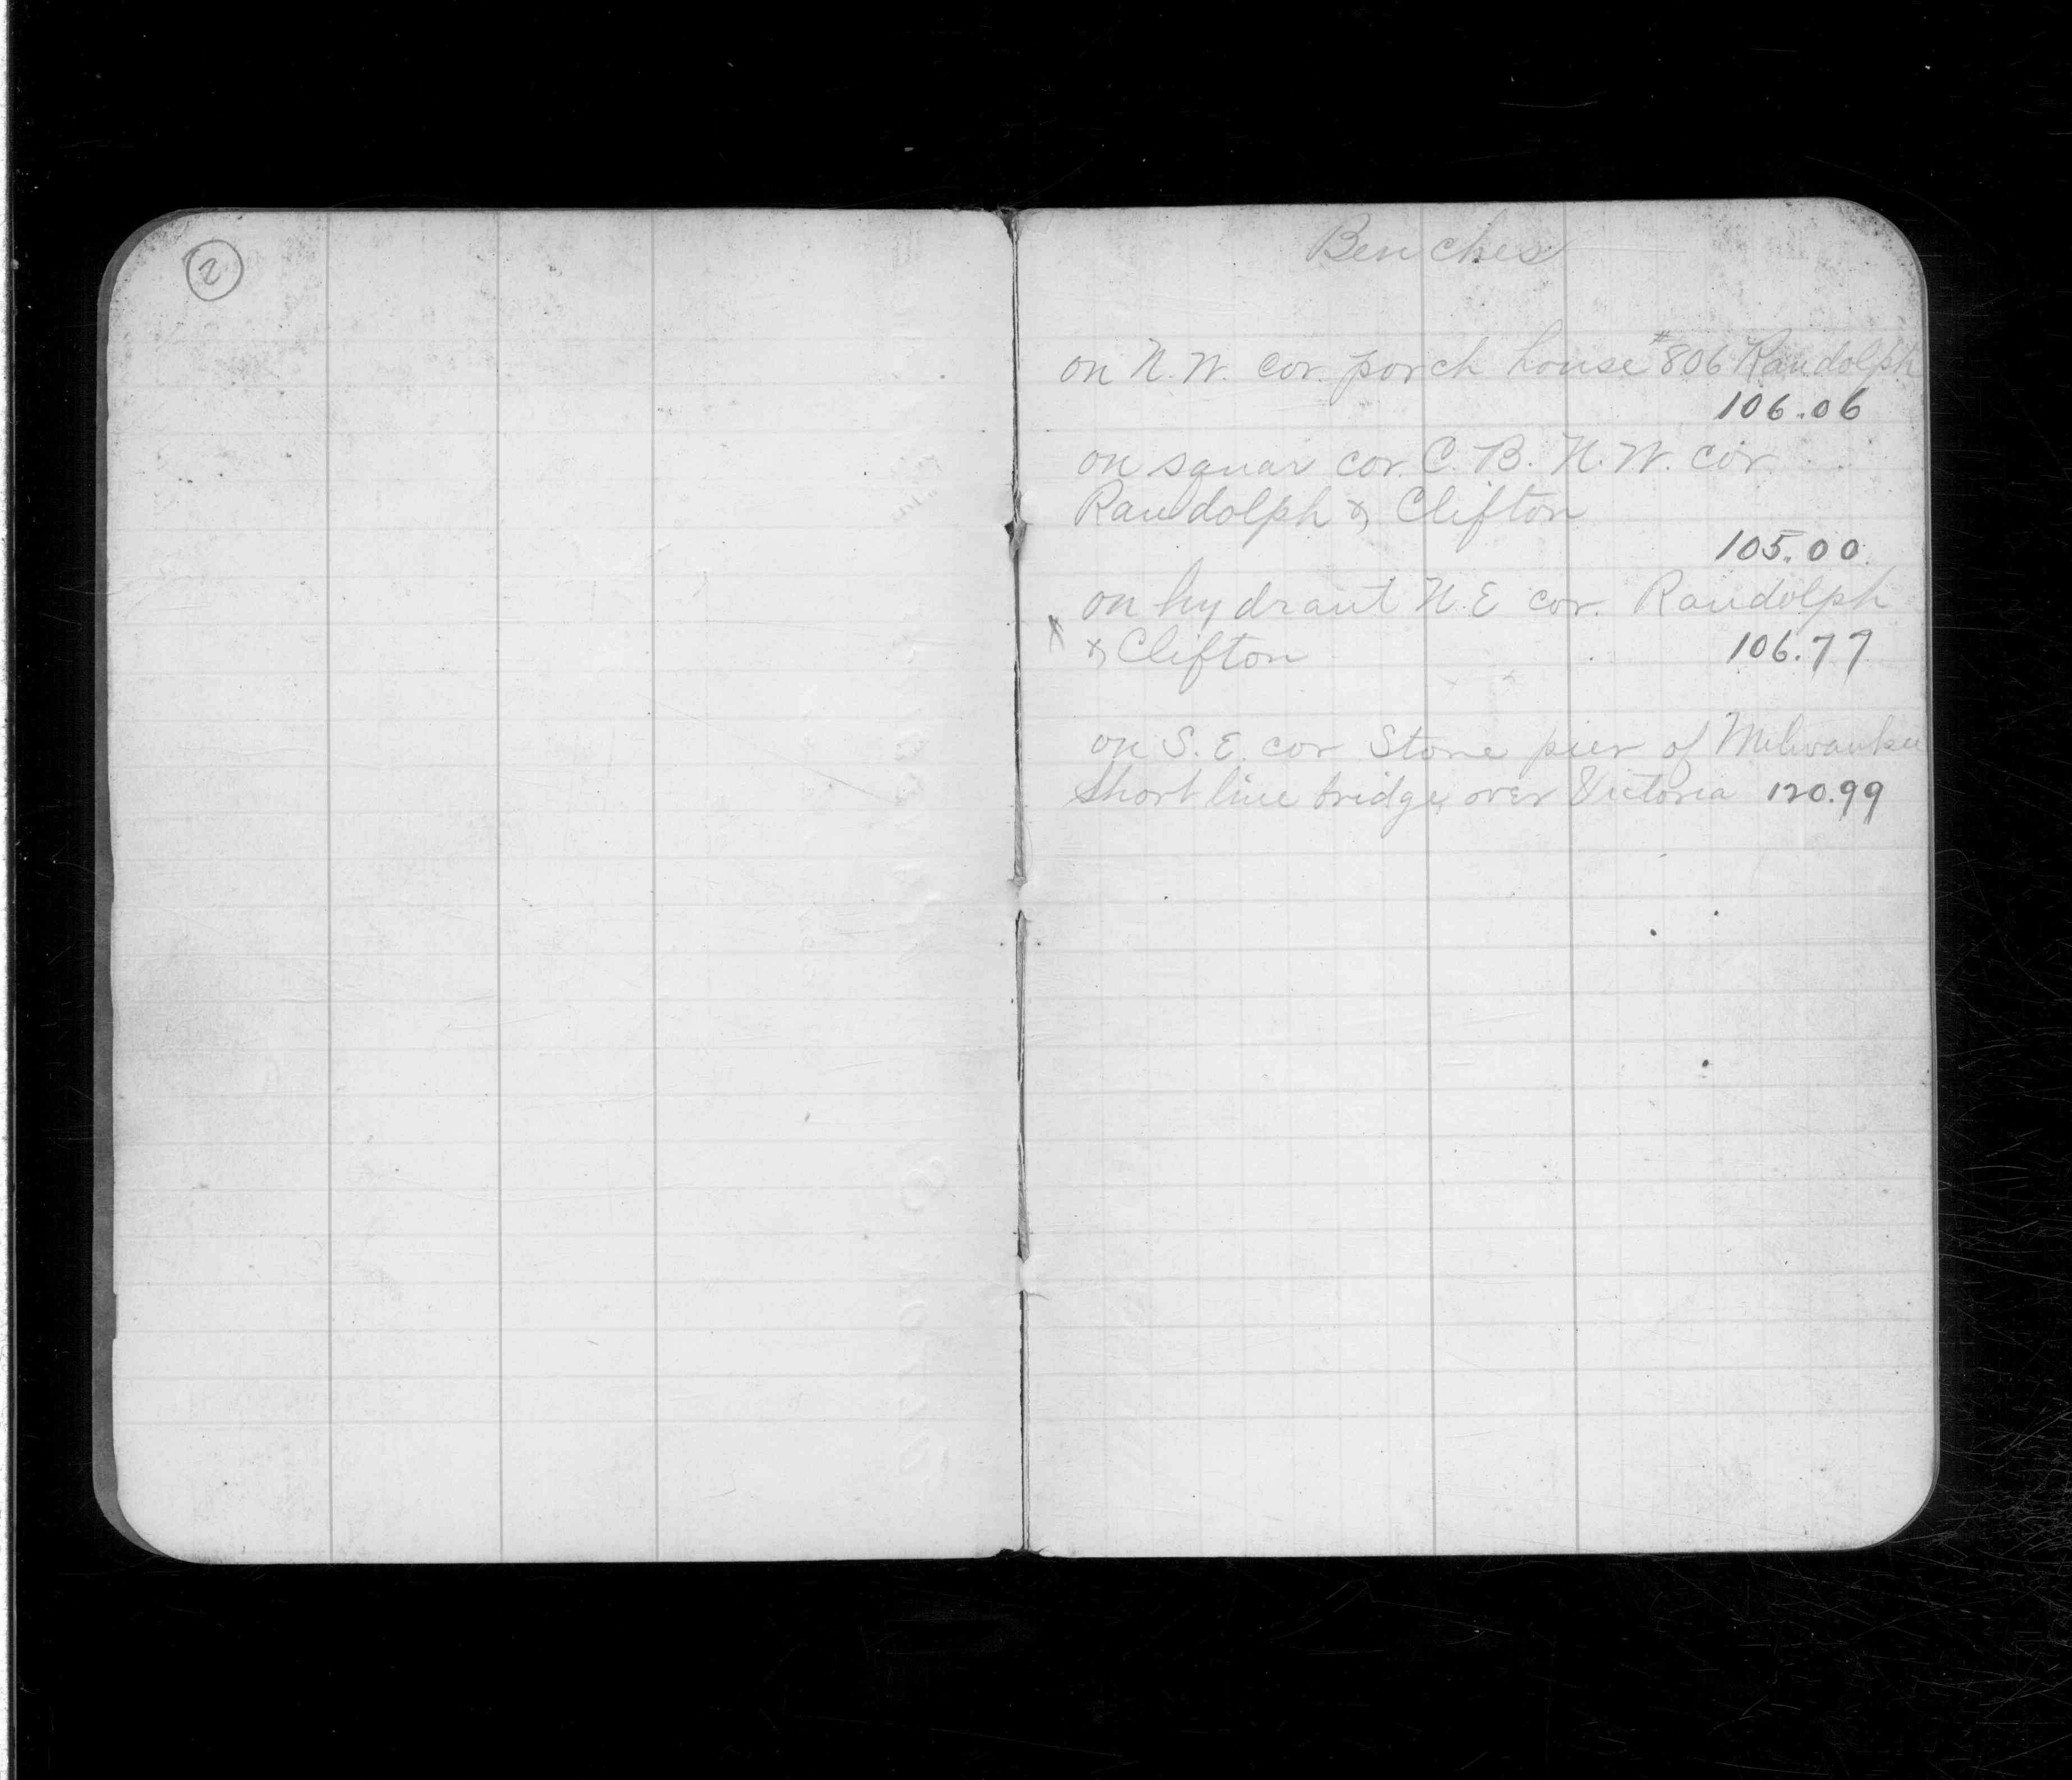 2
Benches
on N.W. cor. porch house #806 Randolph
106.06
on squar cor. C.B. N.W. cor
Randolph & Clifton
105.00
on hydrant N.E cor. Randolph
x & Clifton 106.77
on S.E. cor Stone pier of Milwaukee
Short line bridge over Victoria 120.99